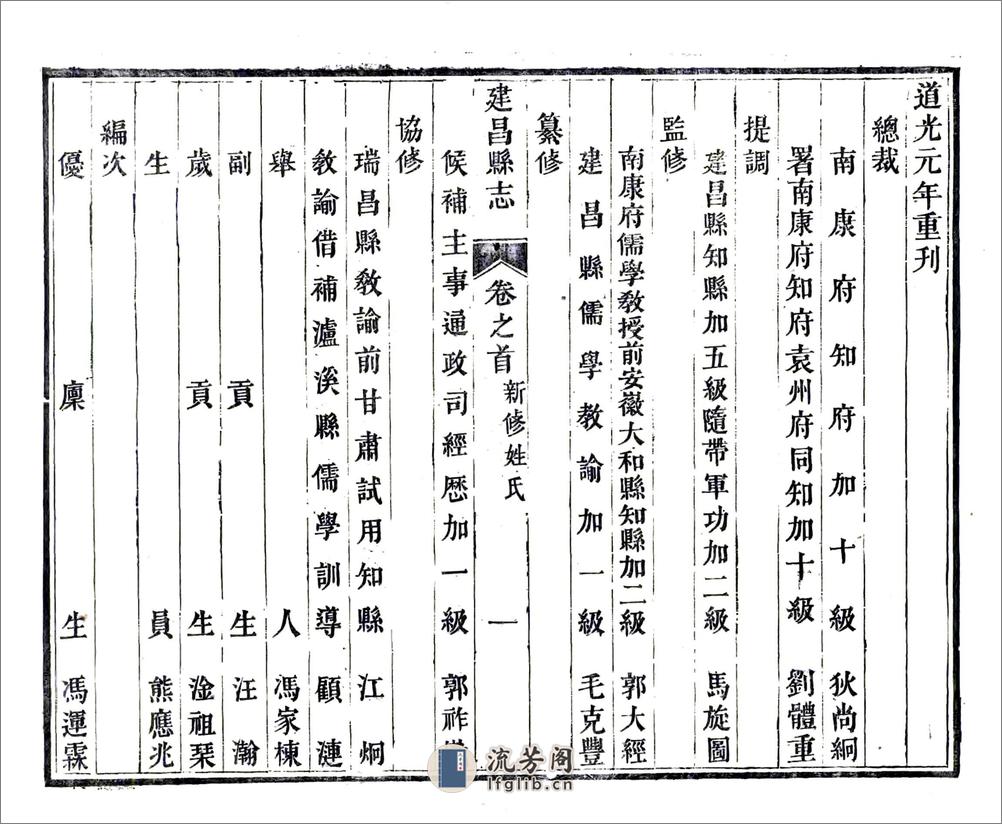 道光元年重刊
總裁
南康府知府加十級 狄尚絅
署南康府知府袁州府同知加十級 劉體重
提調
建昌縣知縣加五級隨帶軍功加二級 馬旋圖
監修
南康府儒學敎授前安徽大和縣知縣加二級 郭大經
建昌縣儒學教諭加一級 毛克豐
纂修
建昌縣志 卷之首 新修姓氏 一
候補主事通政司經歷加一級 郭祚
協修
瑞昌縣敎諭前甘肅試用知縣 江炯
敎諭借補瀘溪縣儒學訓導 顧漣
舉人 馮家棟
副貢生 汪瀚
歲貢生 淦祖琹
生員 熊應兆
編次
優廩生 馮運霖
流芳阁
lfglib.cn